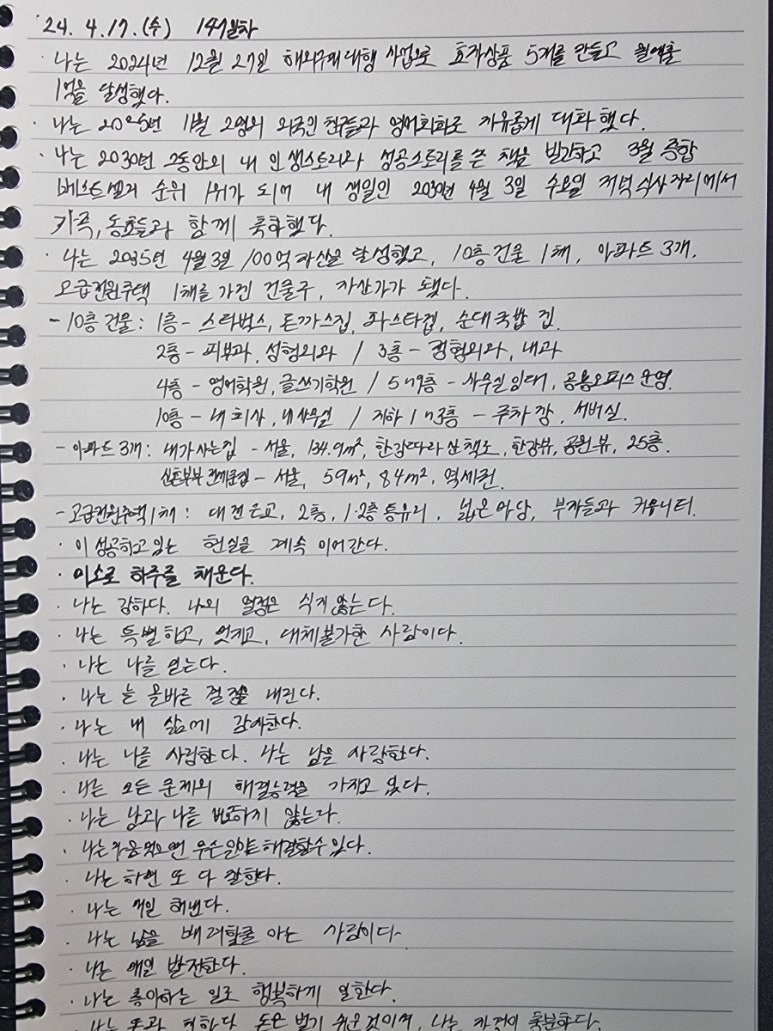 24. 4. 17. (수) 147일차
· 나는 2024년 12월 27일 해외구매대행 사업으로 효자상품 5개를 만들고 월매출
1억을 달성했다.
· 나는 2025년 11월 2명의 외국인 친구들과 영어회화로 자유롭게 대화했다.
· 나는 2030년 그동안의 내 인생스토리와 성공스토리를 쓴 책을 발간하고 3월 종합
베스트셀러 순위 1위가 되어 내 생일인 2030년 4월 3일 수요일 저녁식사자리에서
가족, 동료들과 함께 축하했다.
· 나는 2035년 4월 3일 100억 자산을 달성했고, 10층 건물 1채, 아파트 3개,
고급전원주택 1채를 가진 건물주, 자산가가 됐다.
- 10층 건물: 1층 - 스타벅스, 돈까스집, 파스타집, 순대국밥 집
2층 - 피부과, 성형외과 / 3층 - 정형외과, 내과
4층 - 영어학원, 글쓰기학원 / 5~9층 - 사무실임대, 공용오피스 운영
10층 - 내 회사, 내 사무실 / 지하 1~3층 - 주차장, 서버실.
- 아파트 3개: 내가 사는 집 - 서울, 134.9m², 한강따라 산책로, 한강뷰, 공원뷰, 25층.
신혼부부 전세준집 - 서울, 59m², 84m², 역세권.
- 고급전원주택 1채: 대전 근교, 2층, 1-2층 통유리, 넓은 마당, 부자들과 커뮤니티.
· 이 성공하고있는 현실을 계속 이어간다.
· 미소로 하루를 채운다.
· 나는 강하다. 나의 열정은 식지 않는다.
· 나는 특별하고, 멋지고, 대체불가한 사람이다.
· 나는 나를 믿는다.
· 나는 늘 올바른 결정을 내린다.
· 나는 내 삶에 감사한다.
· 나는 나를 사랑한다. 나는 남을 사랑한다.
· 나는 모든 문제의 해결능력을 가지고 있다.
· 나는 남과 나를 비교하지 않는다.
· 나는 마음먹으면 무슨일이든 해결할수있다.
· 나는 하면 또 다 잘한다.
· 나는 매일 해낸다.
· 나는 남을 배려할줄 아는 사람이다.
· 나는 매일 발전한다.
· 나는 좋아하는 일로 행복하게 일한다.
· 나는 돈과 친하다. 돈은 벌기 쉬운것이며, 나는 자격이 충분하다.